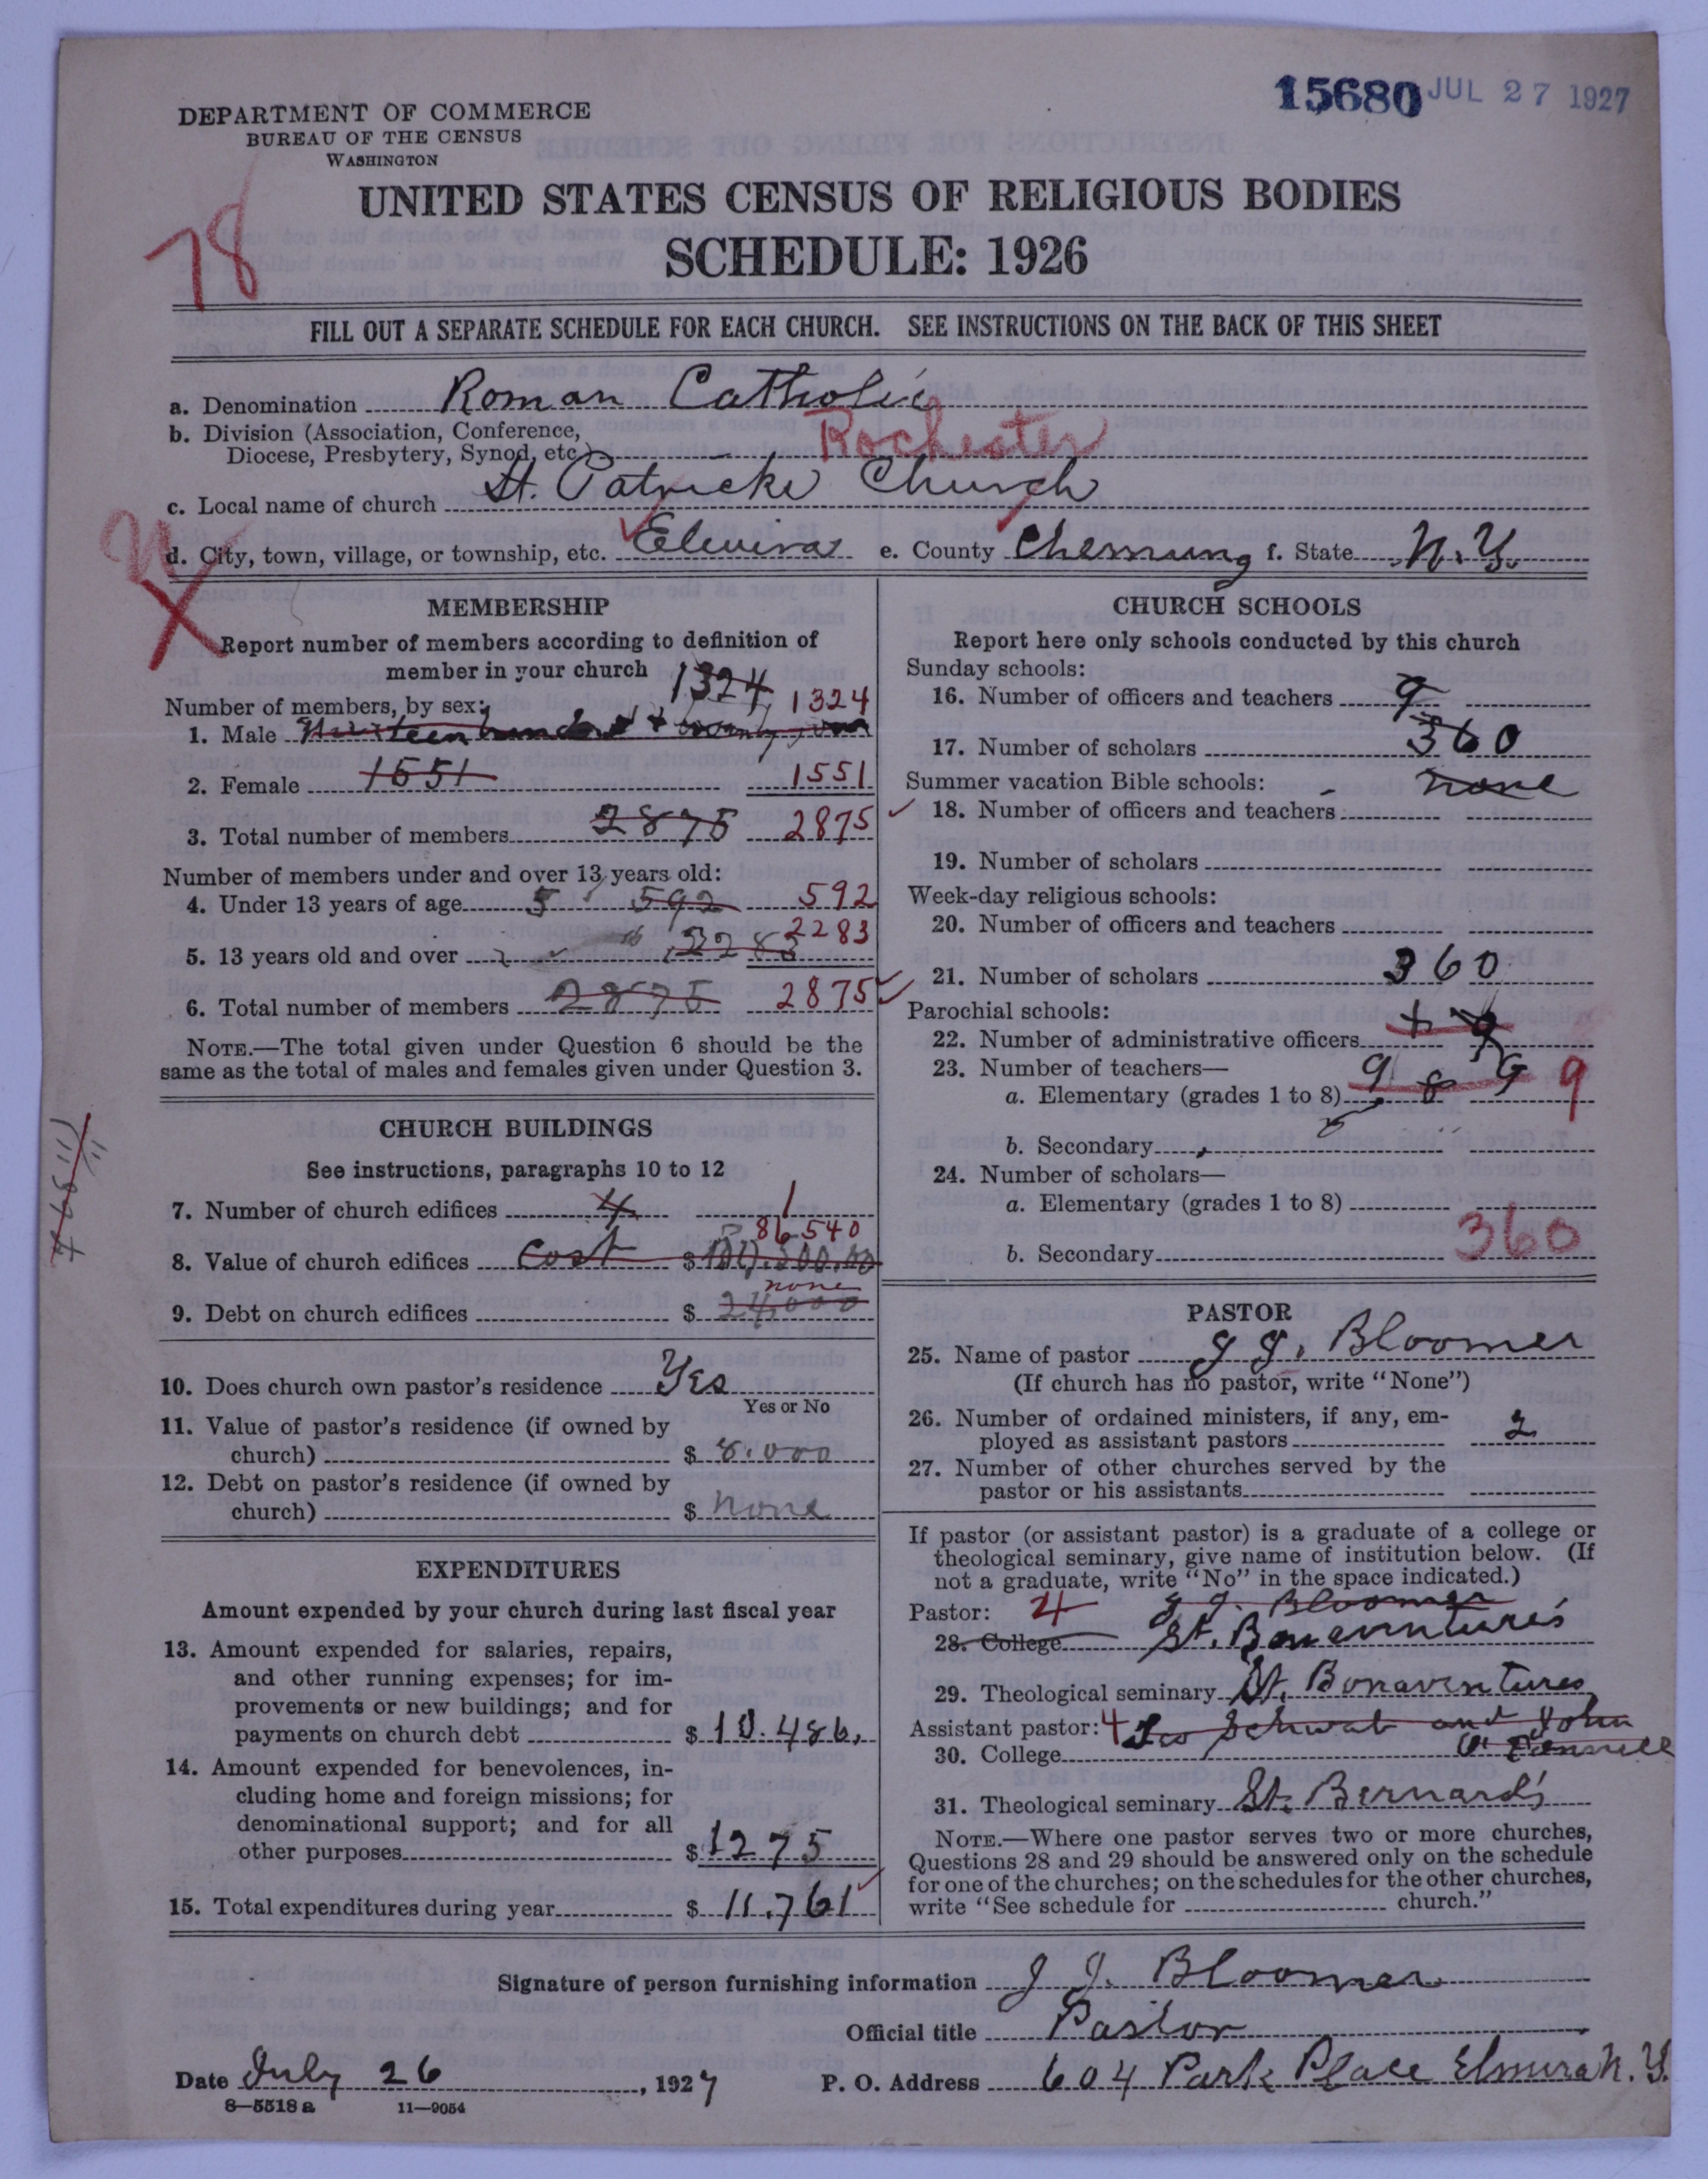 15680 JUL 27 1927
DEPARTMENT OF COMMERCE
BUREAU OF THE CENSUS
WASHINGTON
78
UNITED STATES CENSUS OF RELIGIOUS BODIES
SCHEDULE: 1926
FILL OUT A SEPARATE SCHEDULE FOR EACH CHURCH. SEE INSTRUCTIONS ON THE BACK OF THIS SHEET
a. Denomination Roman Catholic
b. Division (Association, Conference,
Diocese, Presbytery, Synod, etc.) Rochester
c. Local name of church St. Patricks Church
d. City, town, village, or township, etc. Elmira e. County Chemung f. State N.Y.
X
MEMBERSHIP
Report number of members according to definition of
member in your church 1324
Number of members, by sex: 1324
1. Male thirteen hundred + twenty four
2. Female 1551 1551
3. Total number of members 2875 2875
Number of members under and over 13 years old:
4. Under 13 years of age 5 592 592
5. 13 years old and over 2283 2283
6. Total number of members 2875 2875
NOTE.—The total given under Question 6 should be the
same as the total of males and females given under Question 3.
CHURCH BUILDINGS
See instructions, paragraphs 10 to 12
7. Number of church edifices 4 1
86540
8. Value of church edifices cost $
none
9. Debt on church edifices $ 24,000
10. Does church own pastor's residence Yes
Yes or No
11. Value of pastor's residence (if owned by
church) $ 8.000
12. Debt on pastor's residence (if owned by
church) $ none
EXPENDITURES
Amount expended by your church during last fiscal year
13. Amount expended for salaries, repairs,
and other running expenses; for im-
provements or new buildings; and for
payments on church debt $ 10.486.
14. Amount expended for benevolences, in-
cluding home and foreign missions; for
denominational support; and for all
other purposes $ 1275
15. Total expenditures during year $ 11.761
CHURCH SCHOOLS
Report here only schools conducted by this church
Sunday schools:
16. Number of officers and teachers 9
17. Number of scholars 360
Summer vacation Bible schools: none
18. Number of officers and teachers
19. Number of scholars
Week-day religious schools:
20. Number of officers and teachers
21. Number of scholars 360
Parochial schools:
22. Number of administrative officers
23. Number of teachers—
a. Elementary (grades 1 to 8) 9 8 9 9
b. Secondary
24. Number of scholars—
a. Elementary (grades 1 to 8)
b. Secondary 360
PASTOR
25. Name of pastor J J. Bloomer
(If church has no pastor, write "None")
26. Number of ordained ministers, if any, em-
ployed as assistant pastors 2
27. Number of other churches served by the
pastor or his assistants
If pastor (or assistant pastor) is a graduate of a college or
theological seminary, give name of institution below. (If
not a graduate, write "No" in the space indicated.)
Pastor: 4 J J. Bloomer
28. College St. Bonaventure's
29. Theological seminary St. Bonaventures
Assistant pastor: 4 Leo Schwab and John
30. College O'Donnell
31. Theological seminary St. Bernard's
NOTE.—Where one pastor serves two or more churches,
Questions 28 and 29 should be answered only on the schedule
for one of the churches; on the schedules for the other churches,
write "See schedule for church."
Signature of person furnishing information J J. Bloomer
Official title Pastor
Date July 26, 1927 P. O. Address 604 Park Place Elmira N.Y.
8—5518a 11—9054